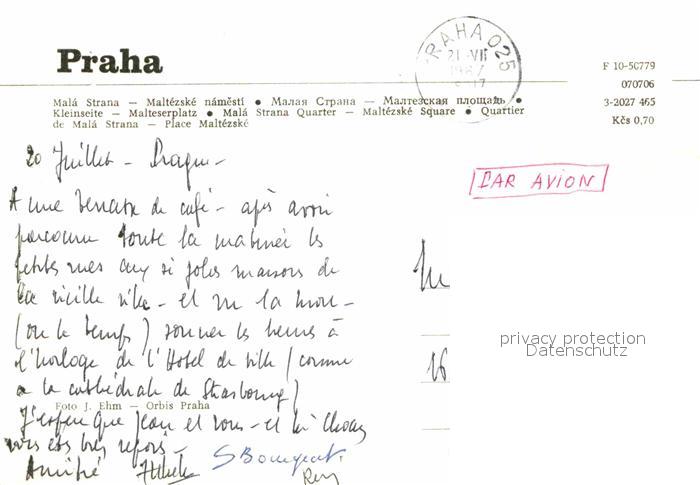 Praha
PRAHA 025
21.VII
F 10-50779
070706
3-2027 465
Kčs 0,70
Malá Strana — Maltézské náměstí ● Малая Страна — Мальтезская площадь ●
Kleinseite — Malteserplatz ● Malá Strana Quarter — Maltézské Square ● Quartier
de Malá Strana — Place Maltézské
20 Juillet - Prague -
PAR AVION
A une terrasse de café - après avoir
parcouru toute la matinée les
petites rues aux si jolies maisons de
la vieille ville - et vu la mort -
(ou le temps) sonner les heures à
l'horloge de l'Hotel de ville (comme
à la cathédrale de Strasbourg)
Foto J. Ehm — Orbis Praha
J'espère que Jean et vous - et
vous êtes bien reposés -
Amitié
privacy protection
Datenschutz